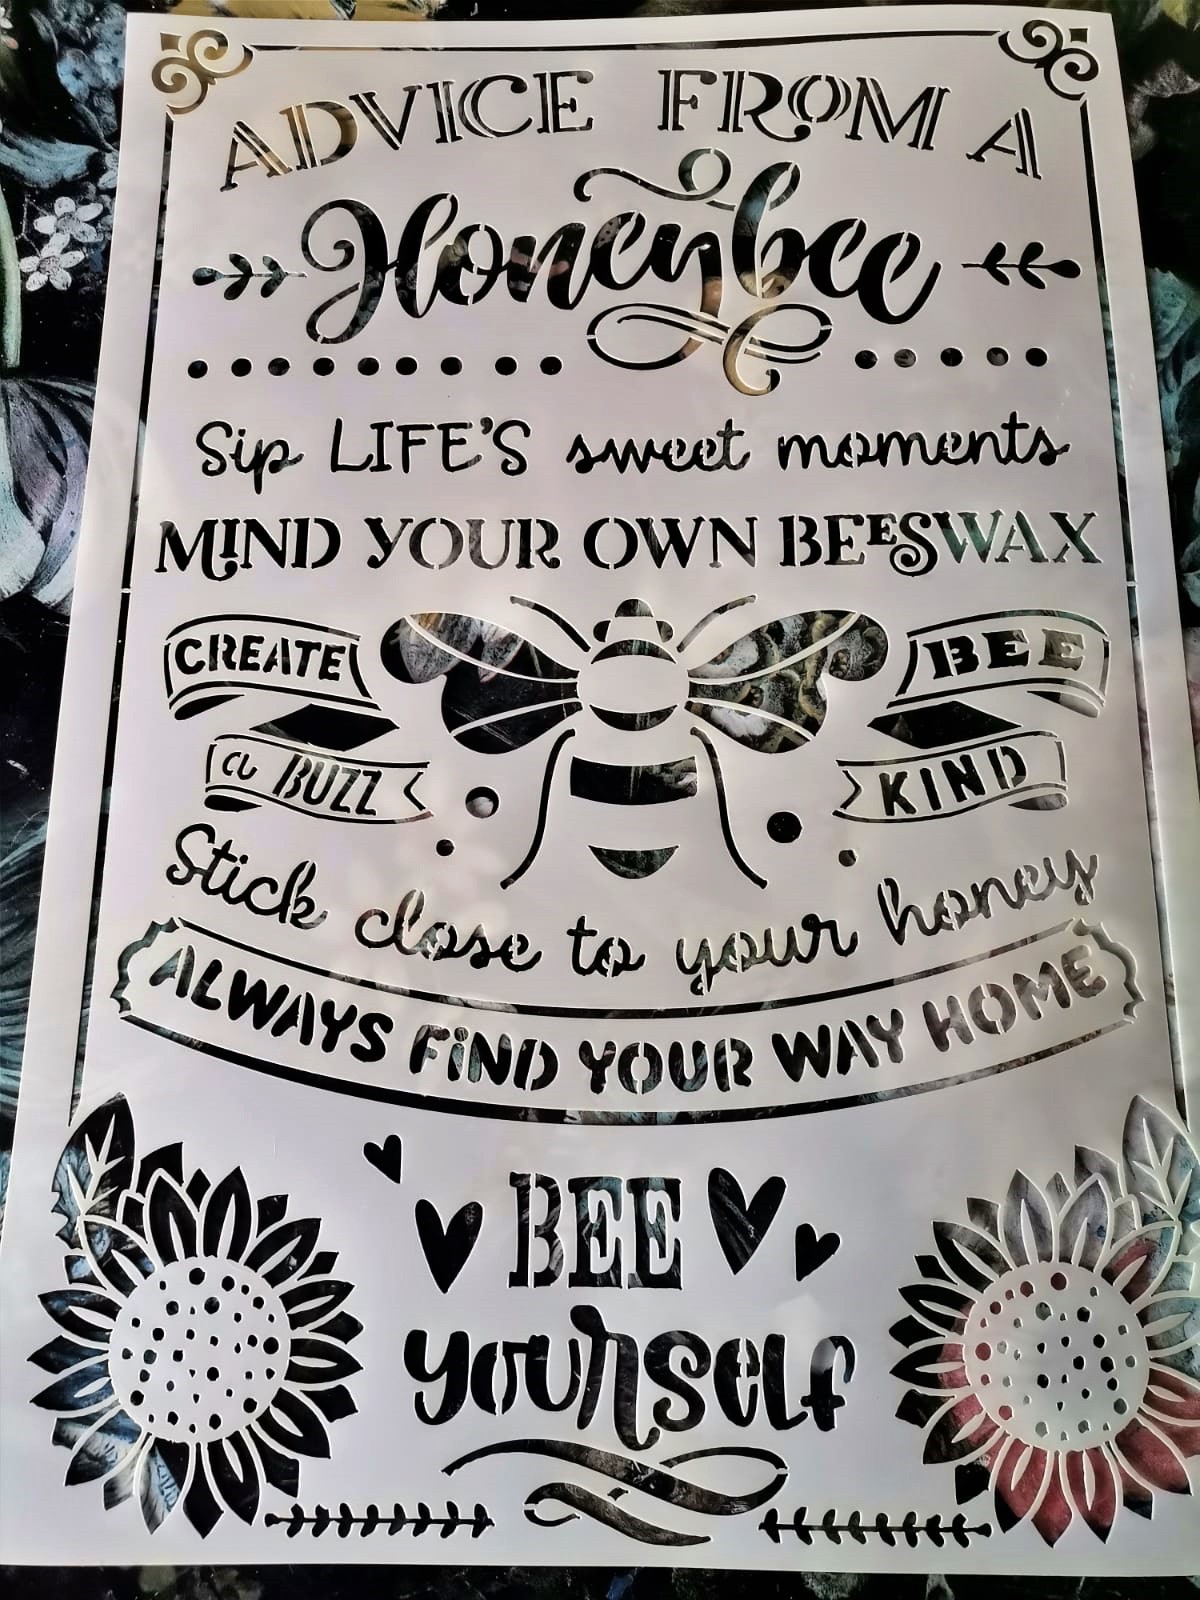 ADVICE FROM A
Honeybee
Sip LIFE'S sweet moments
MIND YOUR OWN BEESWAX
CREATE
a BUZZ
BEE
KIND
Stick close to your honey
ALWAYS FiND YOUR WAY HOME
BEE
yourself